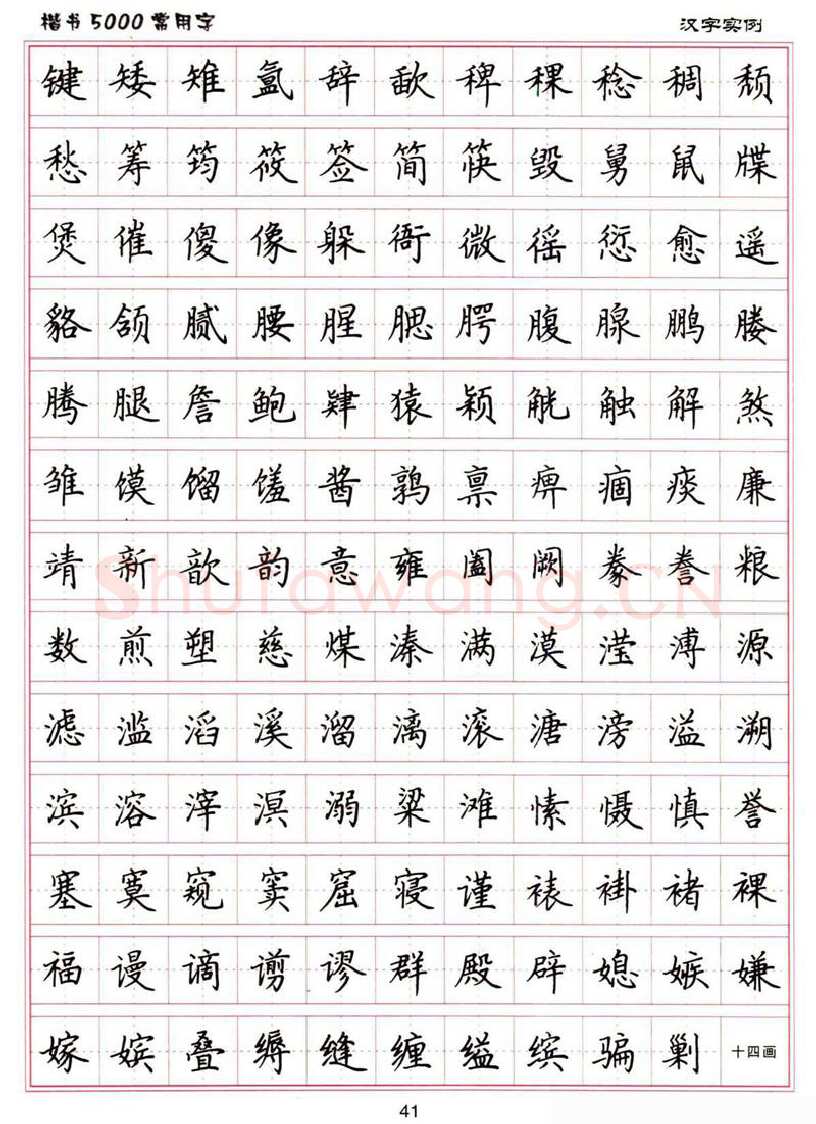 楷书5000常用字 汉字实例
键 矮 雉 氲 辞 歃 稗 稞 稔 稠 颓
愁 筹 筠 筱 签 简 筷 毁 舅 鼠 牒
煲 催 傻 像 躲 衙 微 徭 愆 愈 遥
貉 颌 腻 腰 腥 腮 腭 腹 腺 鹏 塍
腾 腿 詹 鲍 肄 猿 颖 觥 触 解 煞
雏 馍 馏 馐 酱 鹑 禀 痹 痼 痰 廉
靖 新 歆 韵 意 雍 阖 阙 豢 誊 粮
数 煎 塑 慈 煤 溱 满 漠 滢 溥 源
滤 滥 滔 溪 溜 漓 滚 溏 滂 溢 溯
滨 溶 滓 溟 溺 粱 滩 愫 慑 慎 誉
塞 寞 窥 窦 窟 寝 谨 裱 褂 褚 裸
福 谩 谪 谫 谬 群 殿 辟 媳 嫉 嫌
嫁 嫔 叠 缛 缝 缠 缢 缤 骗 剿 十四画
Shufawang.CN
41